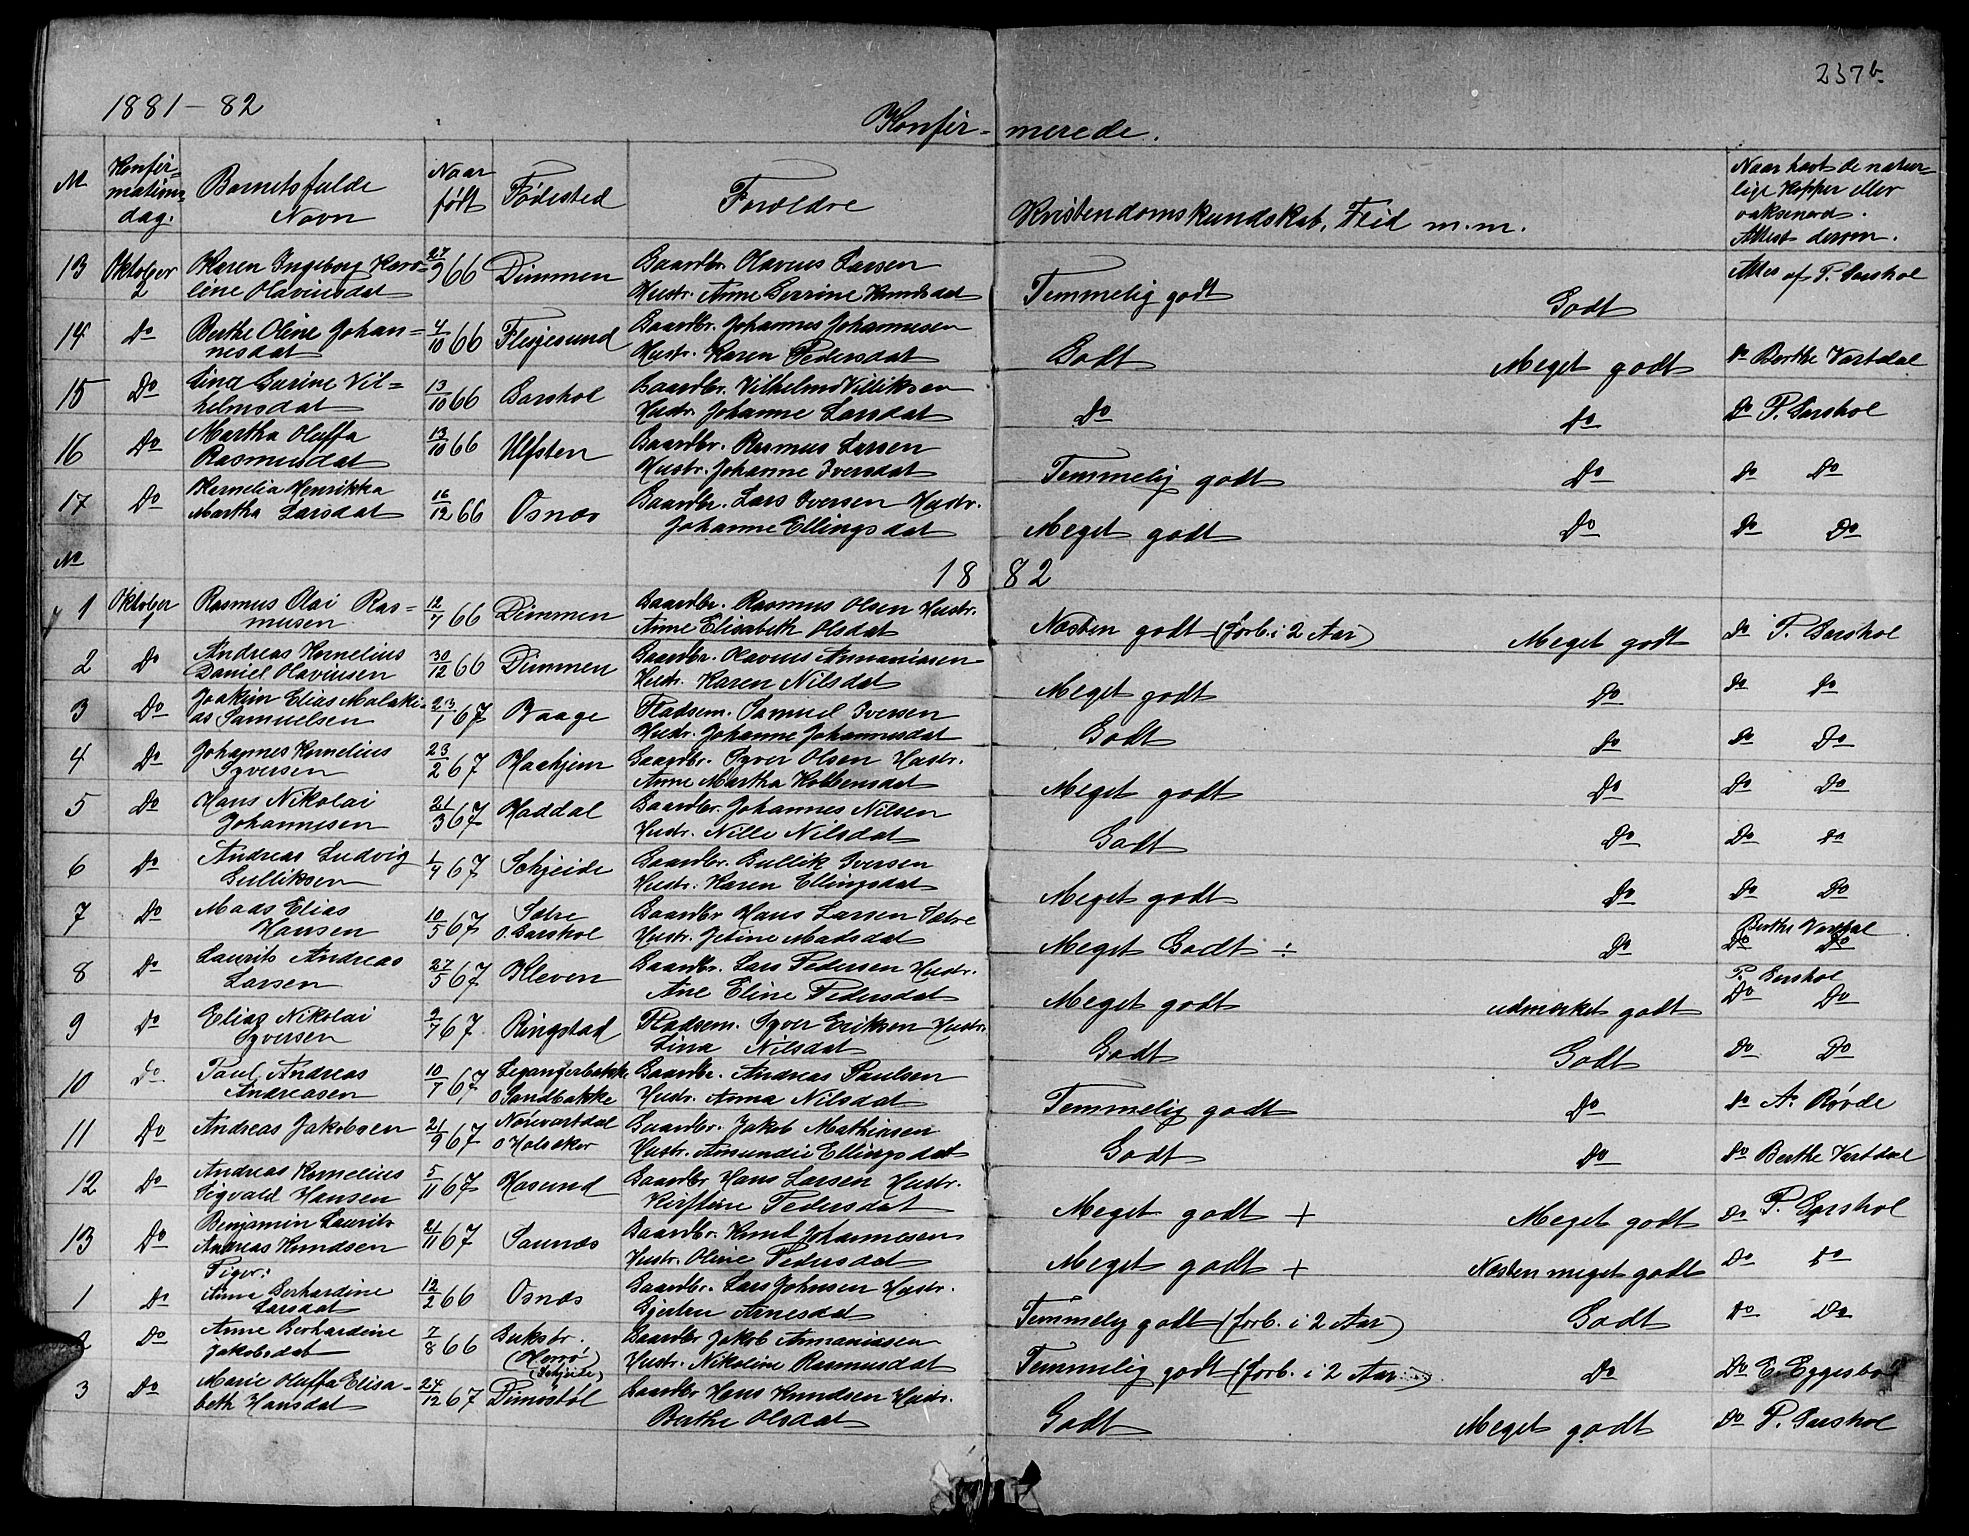 1881-82
237b.
Konfir-merede.
No
Konfir=
mations
dag.
Barnets fulde
Navn
Naar
født
Fødested
Forældre
Kristendomskundskab, Flid m.m.
Naar havt de natur=
lige Kopper eller
vaksinerd.
Attest derom.
13 Oktober 2 Karen Ingeborg Karo= 27/9 66 Dimmen Gaardbr. Olavius Larsen
line Olaviusdat Hustr. Anne Serine Knudsdat Temmelig godt Godt Attes af P. Barshol
14 Do Berthe Oline Johan= 4/10 66 Flusund Gaardbr. Johannes Johannesen
nesdat Hustr. Karen Pedersdat Godt Meget godt do Berthe Vartdal
15 Do Lina Larine Vil= 13/10 66 Barshol Gaardbr. Vilhelm Villiksen
helmsdat Hustr. Johanne Larsdat Do Do Do P. Barshol
16 Do Martha Oluffa 13/10 66 Ulfsten Gaardbr. Rasmus Larsen
Rasmusdat Hustr. Johanne Iversdat Temmelig godt Do do Do
17 Do Kornelia Henrikka 16/12 66 Osnæs Gaardbr. Lars Iversen Hustr.
Martha Larsdat Johanne Ellingsdat Meget godt Do Do Do
No 1882
1 Oktober 1 Rasmus Olai Ras= 12/7 66 Dimmen Gaardbr. Rasmus Olsen Hustr.
musen Anne Elisabeth Olsdat Næsten godt (forb. i 2 Aar) Meget godt do P. Barshol
2 Do Andreas Kornelius 30/12 66 Dimmen Gaardbr. Olavius Annaniasen
Daniel Olaviusen Hustr. Karen Nilsdat Meget godt Do Do Do
3 Do Joakim Elias Malaki= 23/1 67 Vaage Pladsem. Samuel Iversen
as Samuelsen Hustr. Johanne Johannesdat Godt Do do Do
4 Do Johannes Kornelius 23/2 67 Haahjem Gaardbr. Syver Olsen Hustr.
Syversen Anne Martha Kolbensdat Meget godt Do Do Do
5 Do Hans Nikolai 21/3 67 Haddal Gaardbr. Johannes Nilsen
Johannesen Hustr. Nille Nilsdat Godt Do Do do
6 Do Andreas Ludvig 1/4 67 Schjeide Gaardbr. Gullik Iversen
Gulliksen Hustr. Karen Ellingsdat Meget godt Do Do Do
7 Do Mads Elias 10/5 67 Sætre Gaardbr Hans Larsen Sætre
Hansen o. Barshol Hustr. Jetine Madsdat Meget Godt ÷ Do Berthe Vartdal
Do Do
8 Do Laurits Andreas 27/5 67 Kleven Gaardbr. Lars Pedersen Hustr.
Larsen Ane Eline Pedersdat Meget godt udmærket godt P. Barshol
Do Do
9 Do Elias Nikolai 2/7 67 Ringstad Pladsem. Syver Eriksen Hustr.
Syversen Lina Nilsdat Godt Godt Do Do
10 Do Paul Andreas 10/7 67 Legangerbakke Gaardbr. Andreas Paulsen
Andreasen o Sandbakke Hustr. Anna Nilsdat Temmelig godt Do do A. Røvde
11 Do Andreas Jakobsen 21/9 67 Nørevartdal Gaardbr. Jakob Mathiasen
o Holsekor Hustr. Amundie Ellingsdat Godt Do do Berthe Vartdal
12 Do Andreas Kornelius 5/11 67 Hasund Gaardbr Hans Larsen Hustr.
Sigvald Hansen Kirstine Pedersdat Meget godt + Meget godt do P. Barshol
13 Do Benjamin Laurits 21/11 67 Saunæs Gaardbr. Knut Johannesen
Andreas Knudsen Hustr. Oline Pedersdat Meget godt + Næsten meget godt Do Do
Piger:
1 Do Anna Berhardine 12/2 66 Osnæs Gaardbr. Lars Johnsen Hustr.
Larsdat Gjertru Arnesdat Temmelig godt (forb. i 2 Aar) Godt Do Do
2 Do Anne Berhardine 7/8 66 Buksbr. Gaardbr Jakob Annaniassen
Jakobsdat (Herrø) Hustr. Nikoline Rasmusdat Temmelig godt (forb. i 2 Aar) Do Do E. Eggesbø
(Schjeide)
3 Do Marie Oluffa Elisa= 24/12 67 Dimostøl Gaardbr Hans Knudsen Hustr.
beth Hansdat Berthe Olsdat Godt Meget godt Do P. Barshol